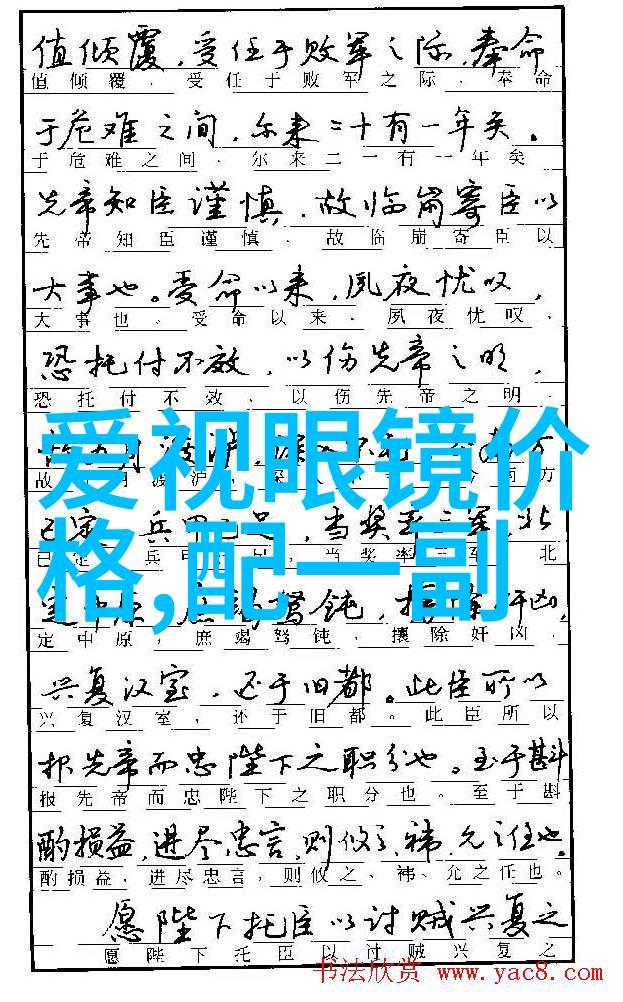 值倾覆，受任于败军之际，奉命
值倾覆，受任于败军之际，奉命
于危难之间，尔来二十有一年矣。
于危难之间，尔来二十有一年矣
先帝知臣谨慎，故临崩寄臣以
先帝知臣谨慎，故临崩寄臣以
大事也。受命以来，夙夜忧叹，
大事也。受命以来，夙夜忧叹，
恐托付不效，以伤先帝之明，
恐托付不效，以伤先帝之明，
爱视眼镜价
格,配一副
南方
故 月渡泸， 南方
定 兵甲已足，当奖率三军，北
已定 兵 足，当奖率三军 北
定中原，庶竭驽钝，攘除奸凶，
定中原，庶竭驽钝，攘除奸凶，
兴复汉室，还于旧都。此臣所以
兴复汉室，还于旧都。此臣所以
报先帝而忠陛下之职分也。至于斟
报先帝而忠陛下之职分也。至于斟
酌损益，进尽忠言，则攸之、祎、允之任也。
酌损益，进尽忠言，则攸之、祎、允之任也。
愿陛下托臣以讨贼兴复之
愿陛下托臣以讨贼兴复之
书法欣赏 www.yac8.com